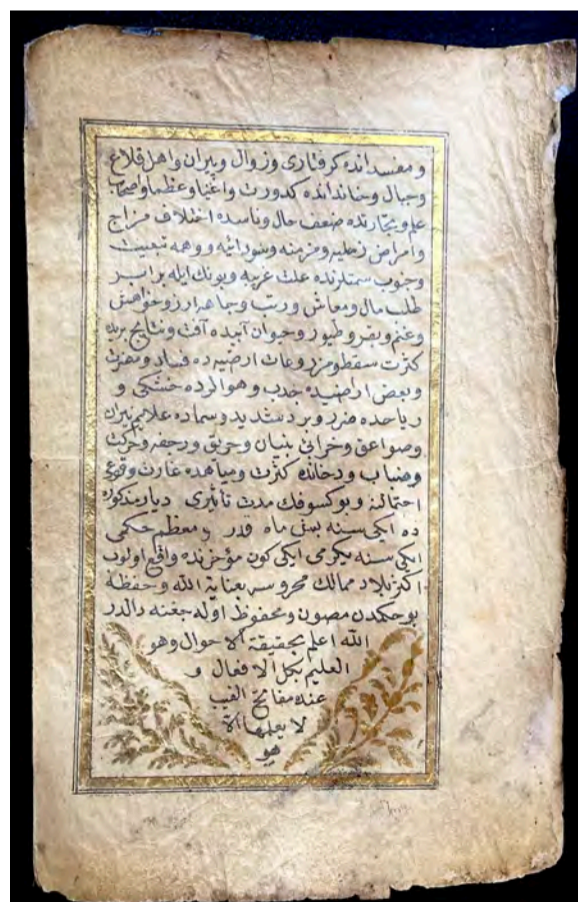 و مفسدانده كرفتارى و زوال و پيران و اهل قلاع
و جبال و خاندانده كدورت و اغنيا و عظما و اصحاب
علم و تجارنده ضعف حال و ناسده اختلاف مزاج
و امراض زحليه و مزمنه و سودائيه و وهمه تبعيت
و جنوب سمتلرنده علت غريبه و بونك ايله برابر
طلب مال و معاش و رتب و جاهه ارزو خواهش
و غنم و بقر و طيور و حيوان آنيده آفت و نتايج بريده
كثرت سقط و مزروعات ارضيه ده فساد و مضرت
و بعض اراضيده جدب و هوالرده خشكى و
رياحده ضرر و برد شديد و سماده علايم نيران
و صواعق و خرابئ بنيان و حرق و رجفه و حركت
و ضباب و دخانده كثرت و مياهده غارت و وقوعى
احتمالنه و بو كسوفك مدت تأثيرى ديار مذكوره
ده ايكى سنه بش ماه قدر و معظم حكمى
ايكى سنه يكرمى ايكى كون مؤخرنده واقع اولوب
اكثر بلاد ممالك محروسه بعناية الله و حفظه
بو حكمدن مصون و محفوظ اوله جغنه دالدر
الله اعلم بحقيقة الاحوال وهو
العليم بكل الافعال و
عنده مفاتح الغيب
لا يعلمها الا
هو